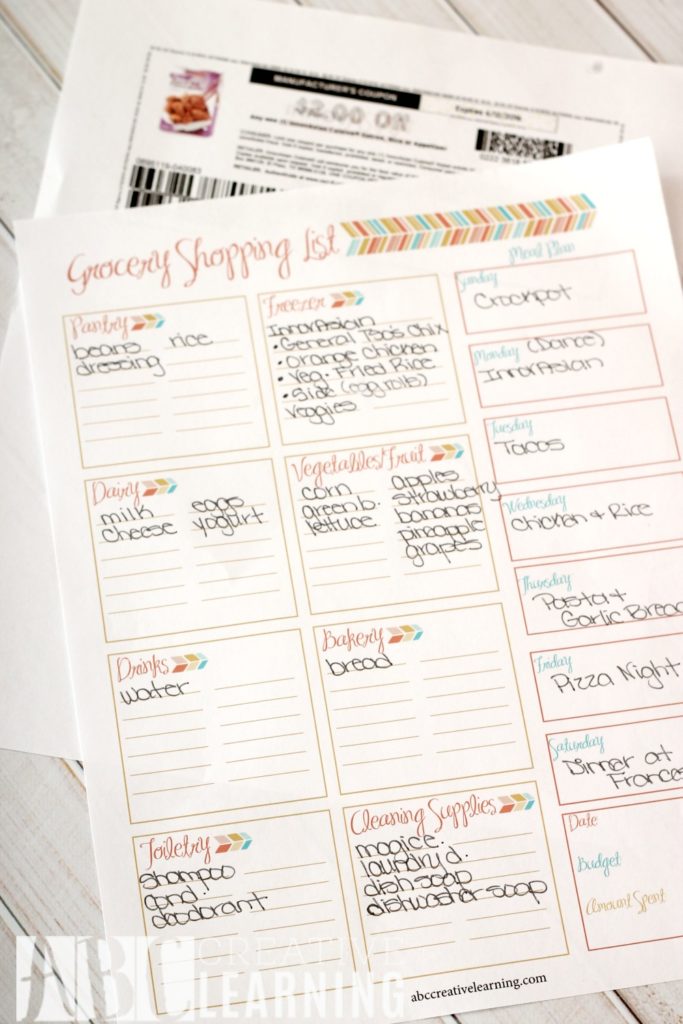 MANUFACTURER'S COUPON
$2.00 ON
Grocery Shopping List
Meal Plan
Pantry
beans rice
dressing
Freezer
InnovAsian
• General Tso's Chix
• Orange Chicken
• Veg. Fried Rice
• Side (eggrolls)
veggies
Sunday
Crockpot
Monday (Dance)
InnovAsian
Tuesday
Tacos
Wednesday
Chicken + Rice
Thursday
Pasta +
Garlic Bread
Friday
Pizza Night
Saturday
Dinner at
Frances
Dairy
milk eggs
cheese yogurt
Vegetables/Fruit
corn apples
green b. strawberry
lettuce bananas
pineapple
grapes
Drinks
water
Bakery
bread
Toiletry
shampoo
cond.
deodorant
Cleaning Supplies
magic e.
laundry d.
dish soap
dishwasher soap
Date
Budget
Amount Spent
ABC CREATIVE
LEARNING
abccreativelearning.com